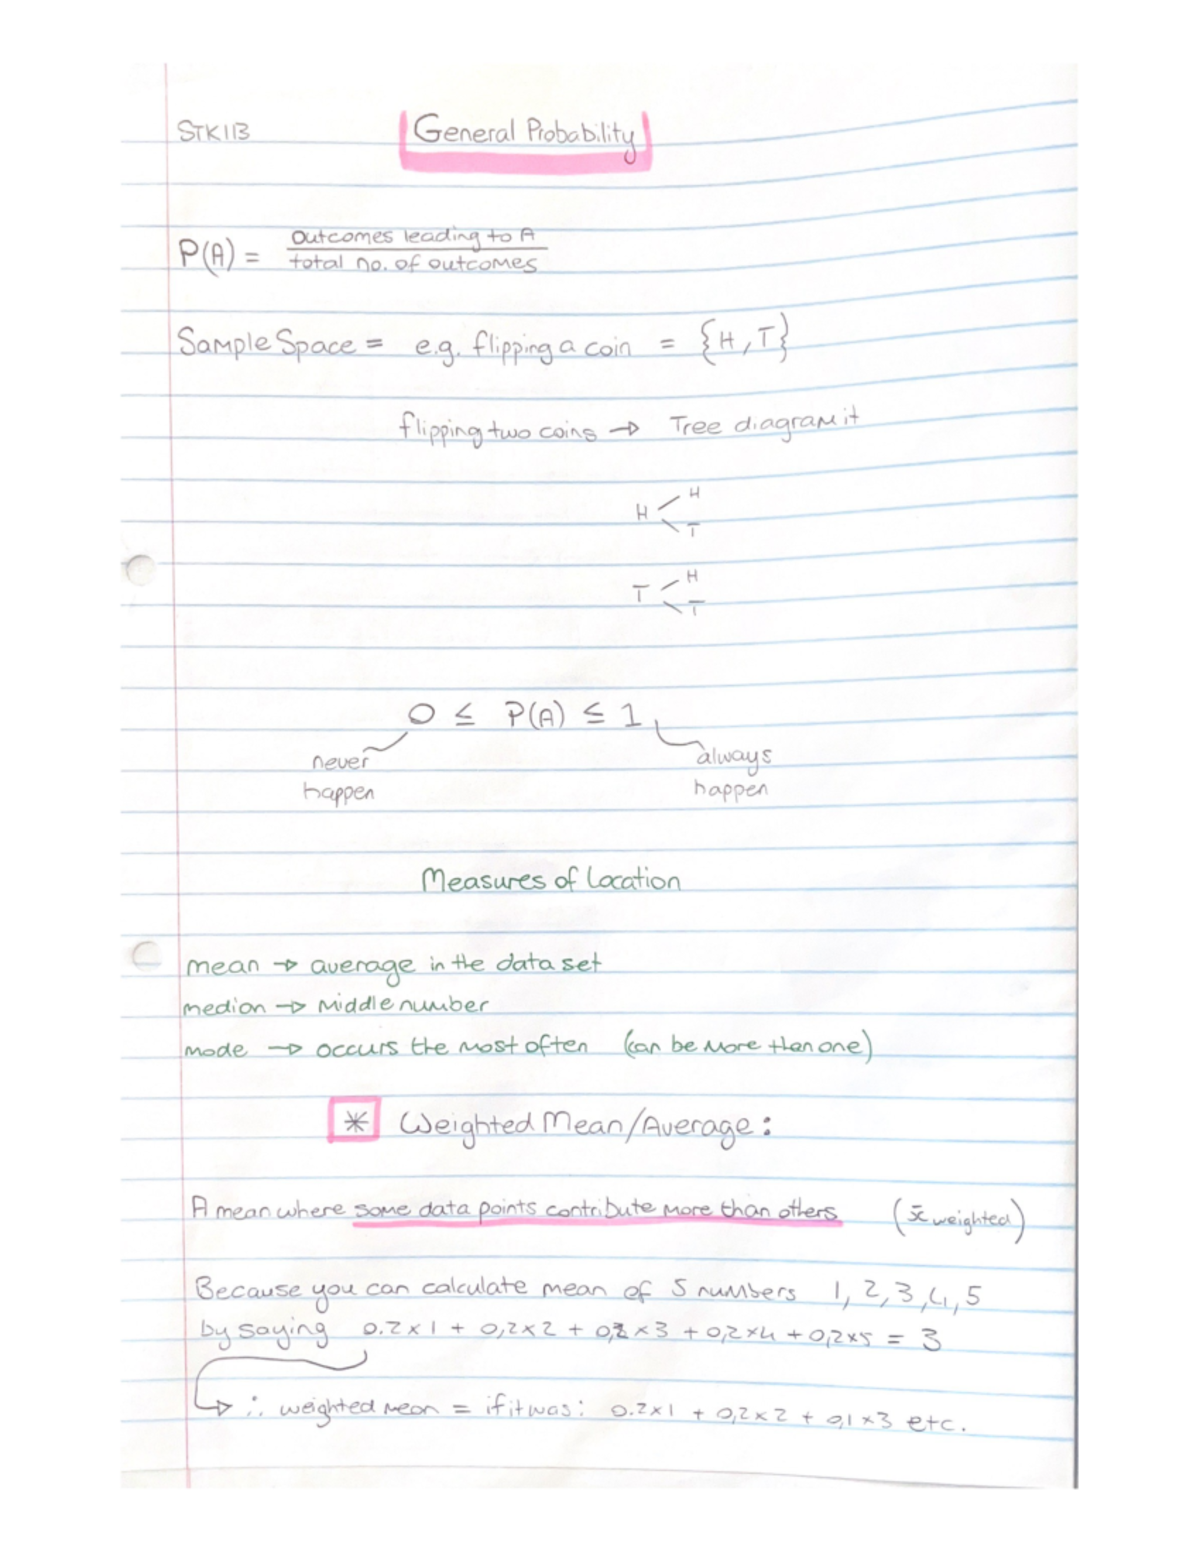 STK113
General Probability
P(A) = outcomes leading to A
total no. of outcomes
Sample Space = e.g. flipping a coin = {H, T}
flipping two coins → Tree diagram it
H
H
T
H
T
T
0 ≤ P(A) ≤ 1
never always
happen happen
Measures of Location
mean → average in the data set
median → middle number
mode → occurs the most often (can be more than one)
* Weighted Mean/Average:
A mean where some data points contribute more than others (x̄ weighted)
Because you can calculate mean of 5 numbers 1, 2, 3, 4, 5
by saying 0.2×1 + 0,2×2 + 0,2×3 + 0,2×4 + 0,2×5 = 3
∴ weighted mean = if it was: 0.2×1 + 0,2×2 + 0,1×3 etc.